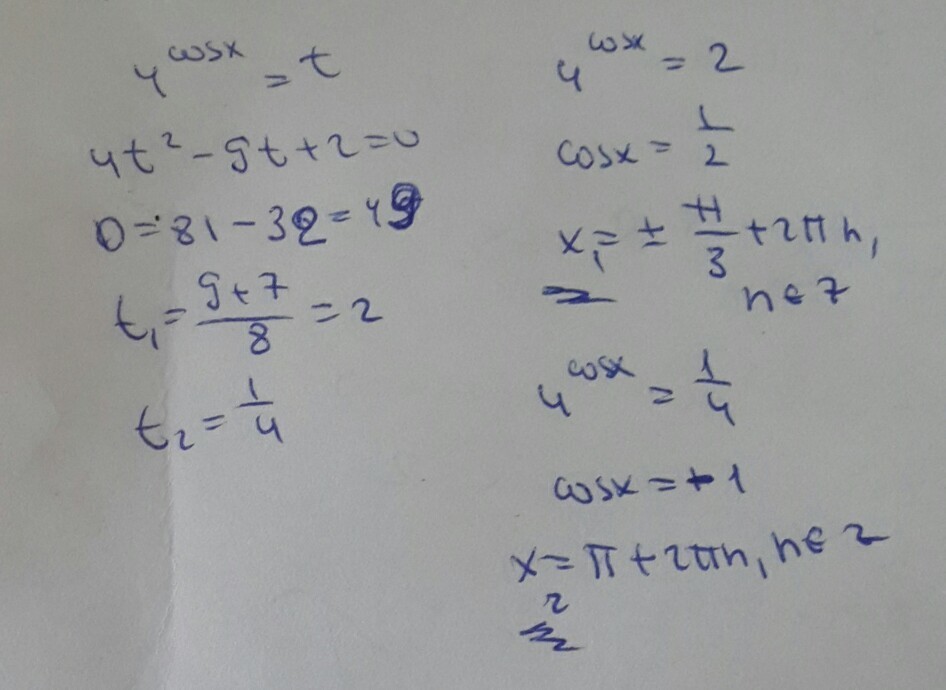 4^cosx = t
4t² - 9t + 2 = 0
D = 81 - 32 = 49
t₁ = (9 + 7)/8 = 2
t₂ = 1/4
4^cosx = 2
cosx = 1/2
x₁ = ± π/3 + 2πn,
n ∈ Z
4^cosx = 1/4
cosx = -1
x₂ = π + 2πn, n ∈ Z